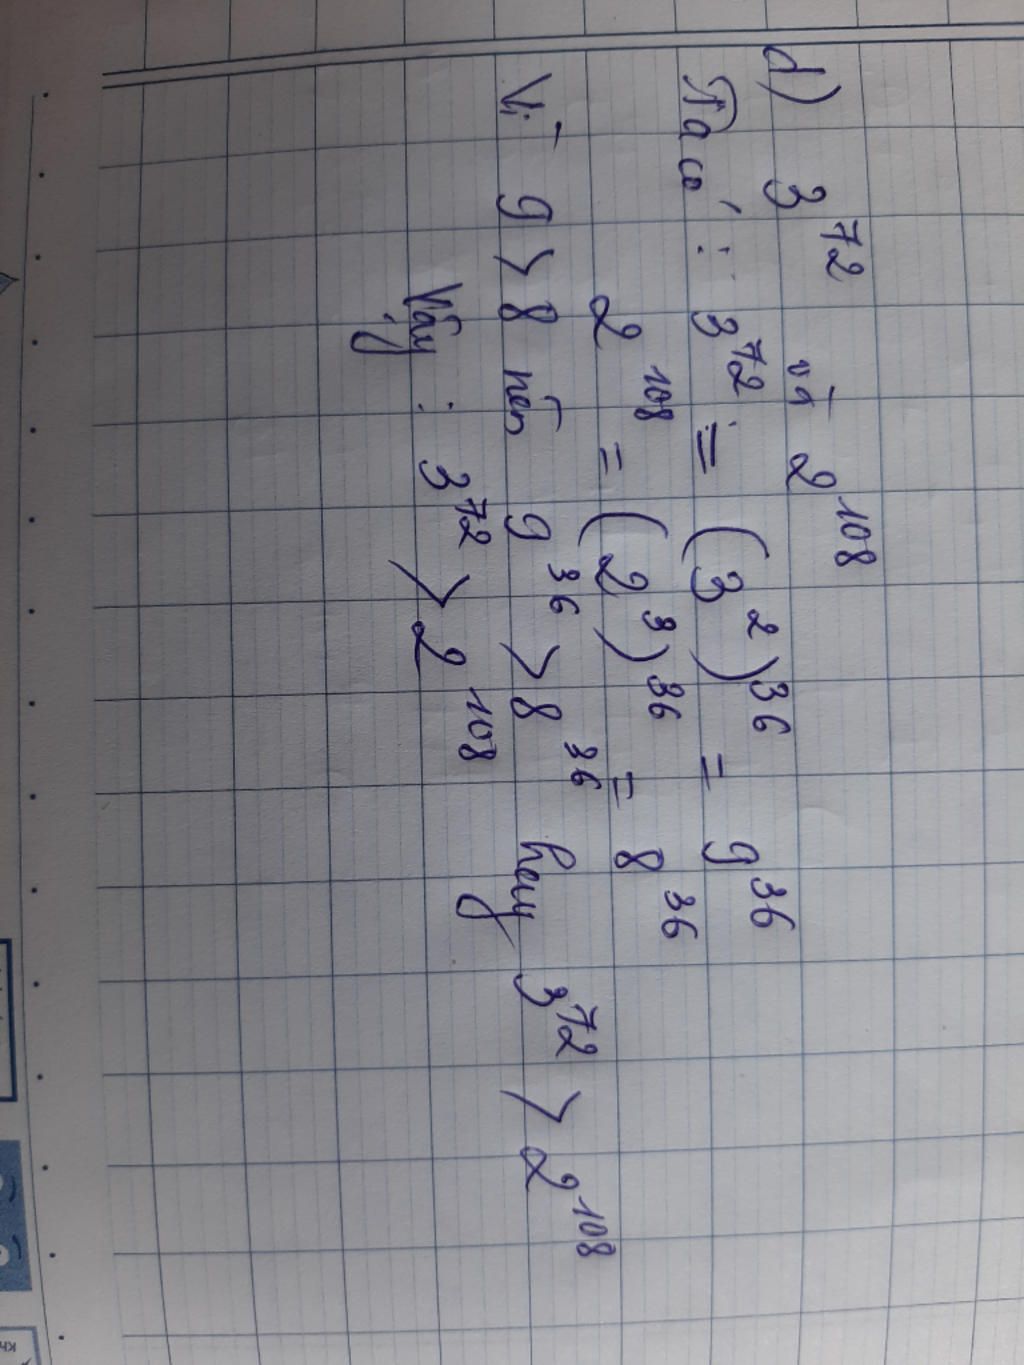 d) 3^72 và 2^108
Ta có : 3^72 = (3^2)^36 = 9^36
2^108 = (2^3)^36 = 8^36
Vì 9 > 8 nên 9^36 > 8^36 hay 3^72 > 2^108
Vậy : 3^72 > 2^108